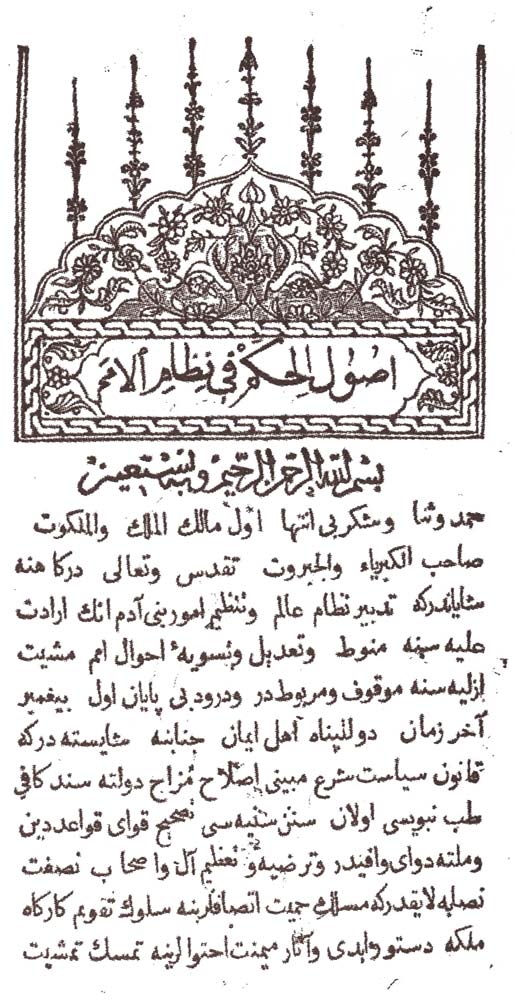 اصول الحكم في نظام الامم
بسم الله الرحمن الرحيم وبه نستعين
حمد وثنا وشكر بى انتها اول مالك الملك والملكوت
صاحب الكبرياء والجبروت تقدس وتعالى دركاهنه
شاياندركه تدبير نظام عالم وتنظيم امور بنى آدم انك ارادت
عليه سينه منوط وتعديل وتسويۀ احوال امم مشيت
ازليه سنه موقوف ومربوطدر ودرود بى پايان اول پيغمبر
آخر زمان دولتپناه اهل ايمان جنابنه شايسته دركه
قانون سياست شرع مبينى اصلاح مزاج دولته سند كافي
طب نبويسى اولان سنن سنيه سى تصحيح قواى قواعد دين
وملته دواى وافيدر وترضيه وتعظيم آل واصحاب نصفت
نصابه لايقدركه مسلك حميت اتصافلرينه سلوك تقويم كاركاه
ملكه دستور ابدى وآثار ميمنت احتوالرينه تمسك تمشيت